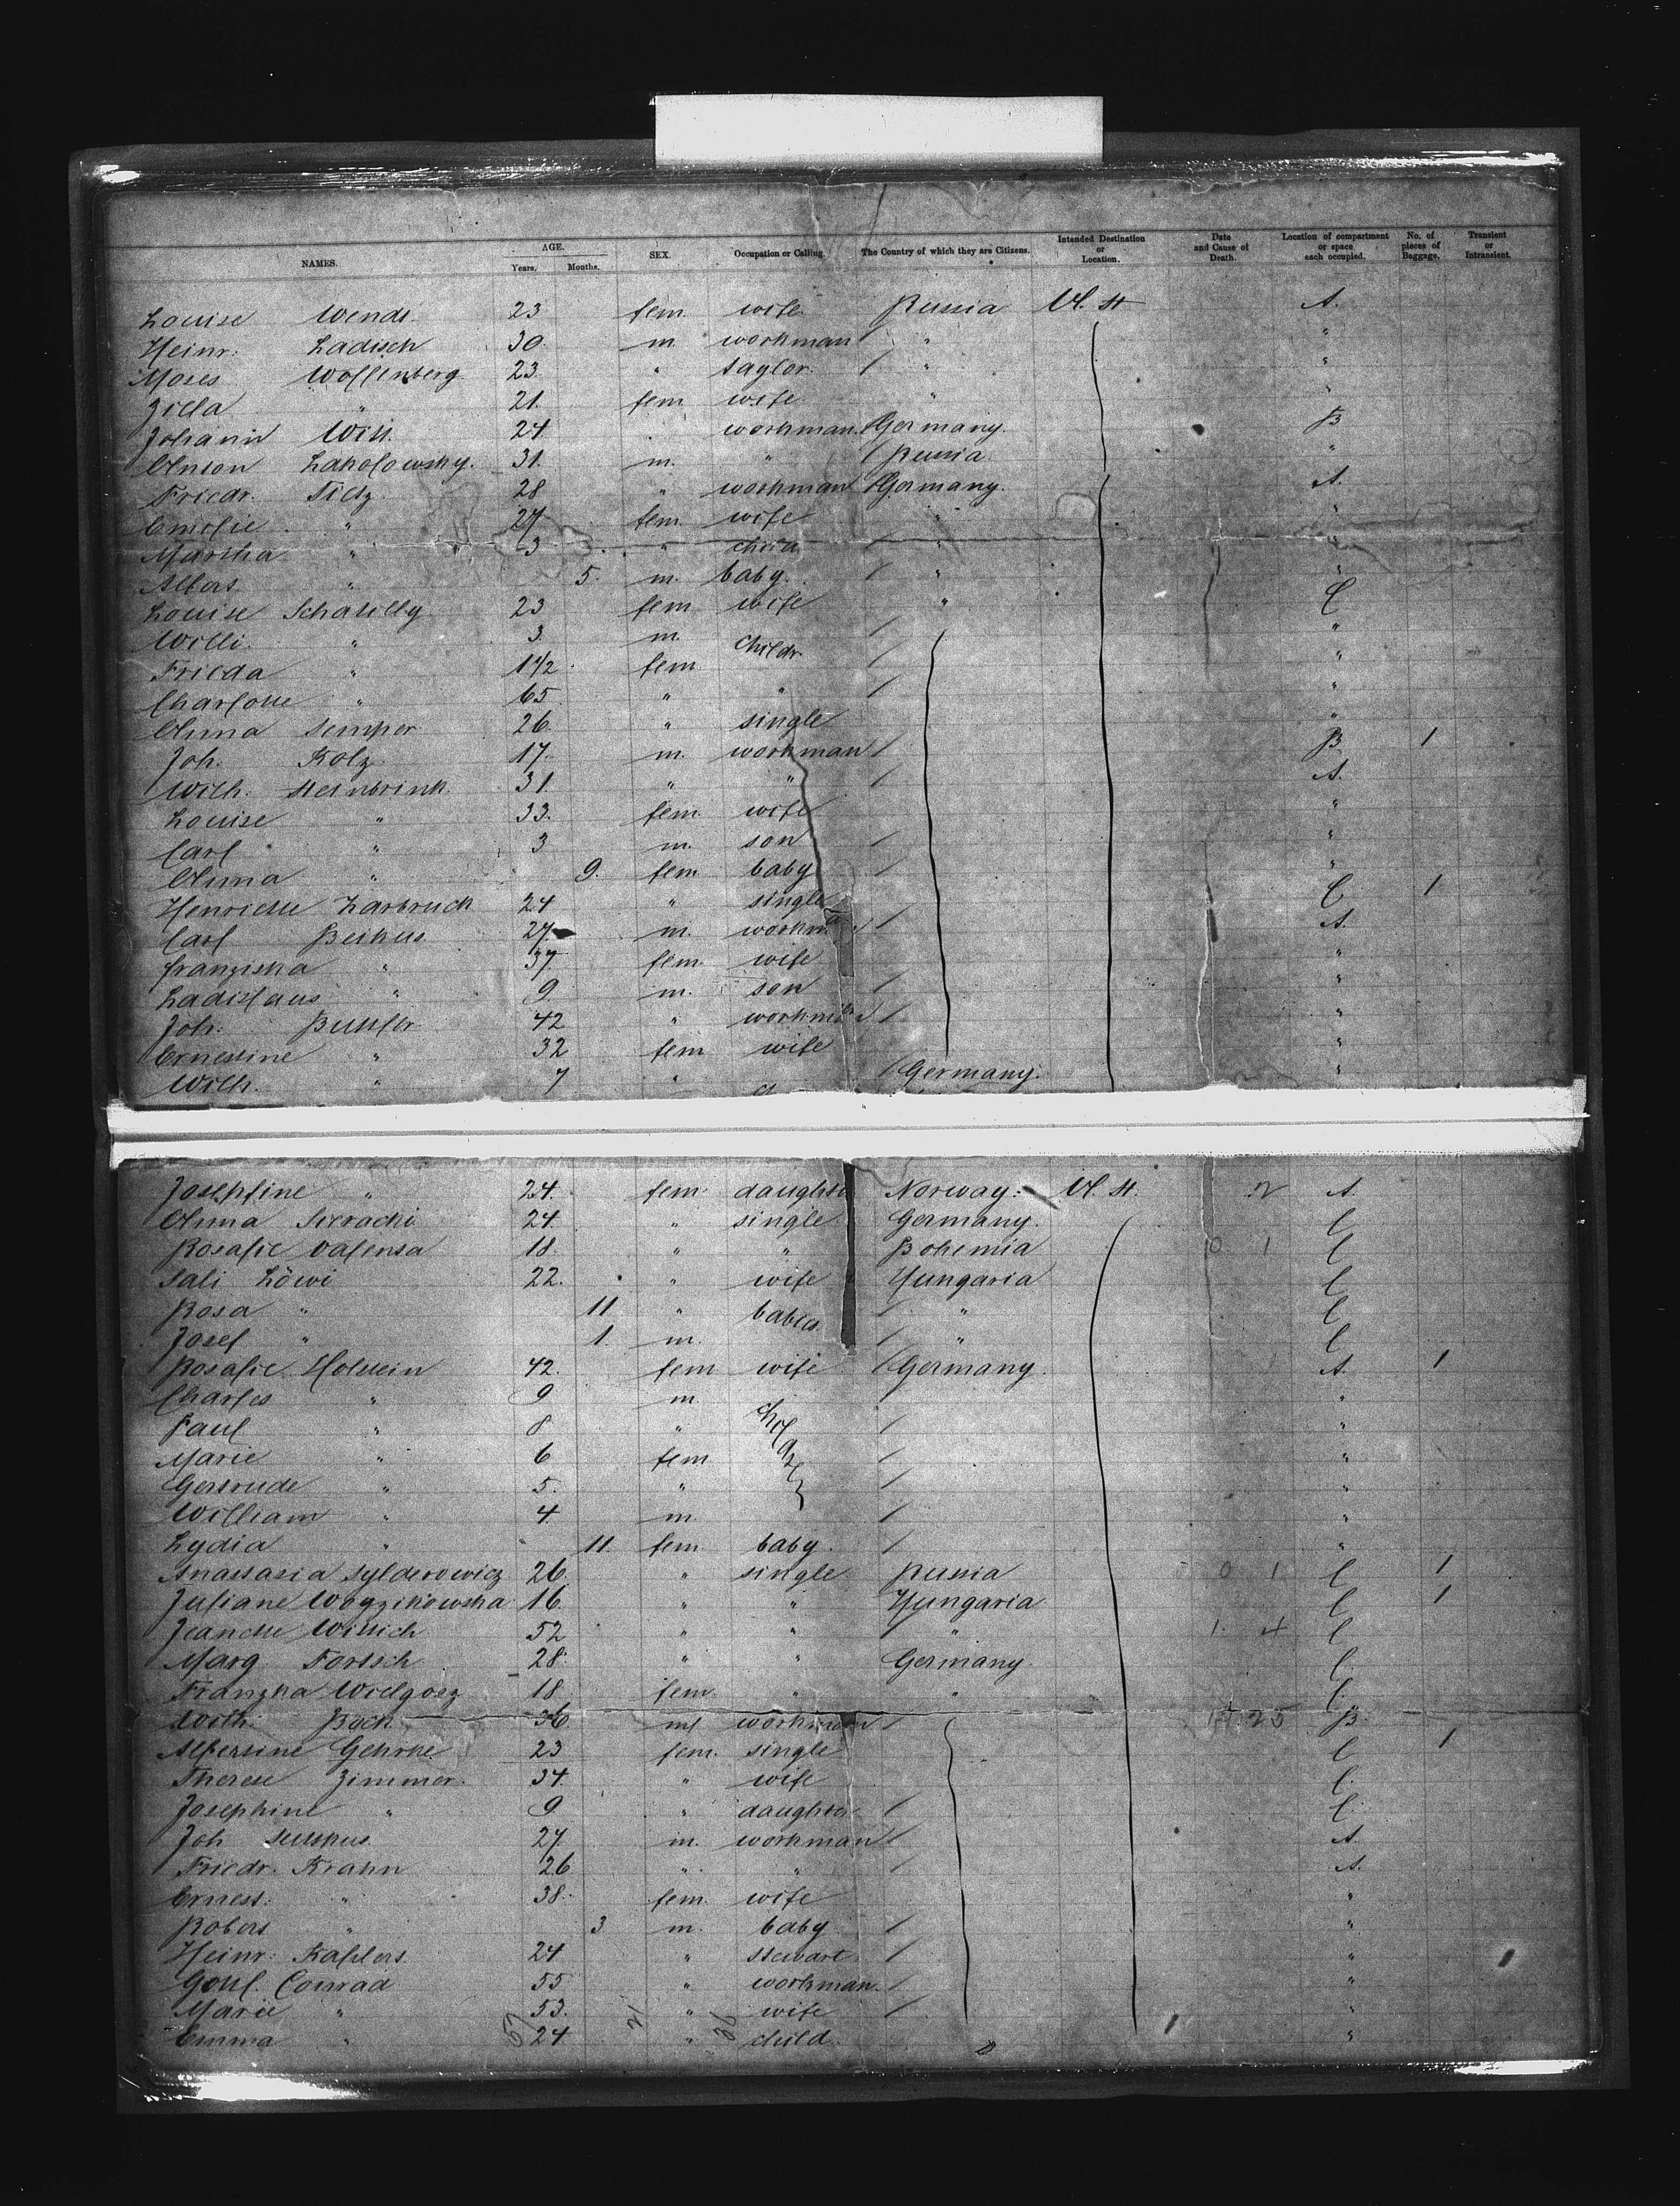 NAMES. AGE. Years. Months. SEX. Occupation or Calling. The Country of which they are Citizens. Intended Destination or Location. Date and Cause of Death. Location of compartment or space each occupied. No. of pieces of Baggage. Transient or Intransient.
Louise Wendt 23 fem. wife. Russia U. St A.
Heinr. Ladisch 30. m. workman / " "
Moses Wollenberg 23. " taylor. / " "
Zilla " 21. fem wife. " "
Johann Witt. 24 workman. Germany. B
Anton 31. m. " / Russia "
Friedr. Tietz 28 " workman / Germany. A.
Emilie " 27 fem. wife " "
Martha " 3 " child / " "
Albert " 5. m. baby. / " "
Louise 23 fem wife " C
Willi. " 3. m. Childr. / "
Frieda " 1 1/2 fem / "
Charlotte " 65 " " / "
Anna Semper 26. " single "
Joh. Kolz 17. m. workman / B 1
Wilh. Steinbrink 31. " " / A.
Louise " 33. fem. wife "
Carl " 3 m. son / "
Anna " 9. fem baby / "
Henriette Larbruck 24 " single C 1
Carl Beikus 27. m. workman / A.
Franziska " 37 fem. wife "
Ladislaus " 9. m. son / "
Joh. Buttler 42 " workman / "
Ernestine " 32 fem wife "
Wilh. " 7 " / Germany. "
Josephine " 24. fem. daughter Norway. U. St. 2 A.
Anna 24. " single Germany. C
Rosalie Valensa 18. " " Bohemia 0 1 C
Sali Löwi 22. " wife Hungaria C
Rosa " 11 " babies. / " C
Josef " 1. m. / " C
Rosalie Holstein 42. fem wife / Germany. A. 1
Charles " 9 m. "
Paul " 8 " childr. / "
Marie " 6 fem / "
Gertrude " 5. " / "
William " 4 m. / "
Lydia " 11. fem. baby. / "
Anastasia Sylderowicz 26. " single Russia 0 1 C 1
Juliane 16 " " Hungaria C 1
Jeanette Wittich 52 " " / " 1. 4 C
Marg Fortsch 28. " " Germany. C.
Franzka Wielgosz 18 fem. " " C.
Wilh. Bock 36 m workman / 25 B.
Albertine Gehrke 23 fem. single C 1
Therese Zimmer. 34. " wife C.
Josephine " 9 " daughter / C.
Joh 27. m. workman / A.
Friedr. Krahn 26 " " / A.
Ernest. " 38. fem. wife "
Robert " 3 m. baby / "
Heinr. Kahlers. 24 " stewart / "
Gottl. Conrad 55 " workman. / "
Marie " 53. " wife / "
Emma " 24. " child. "